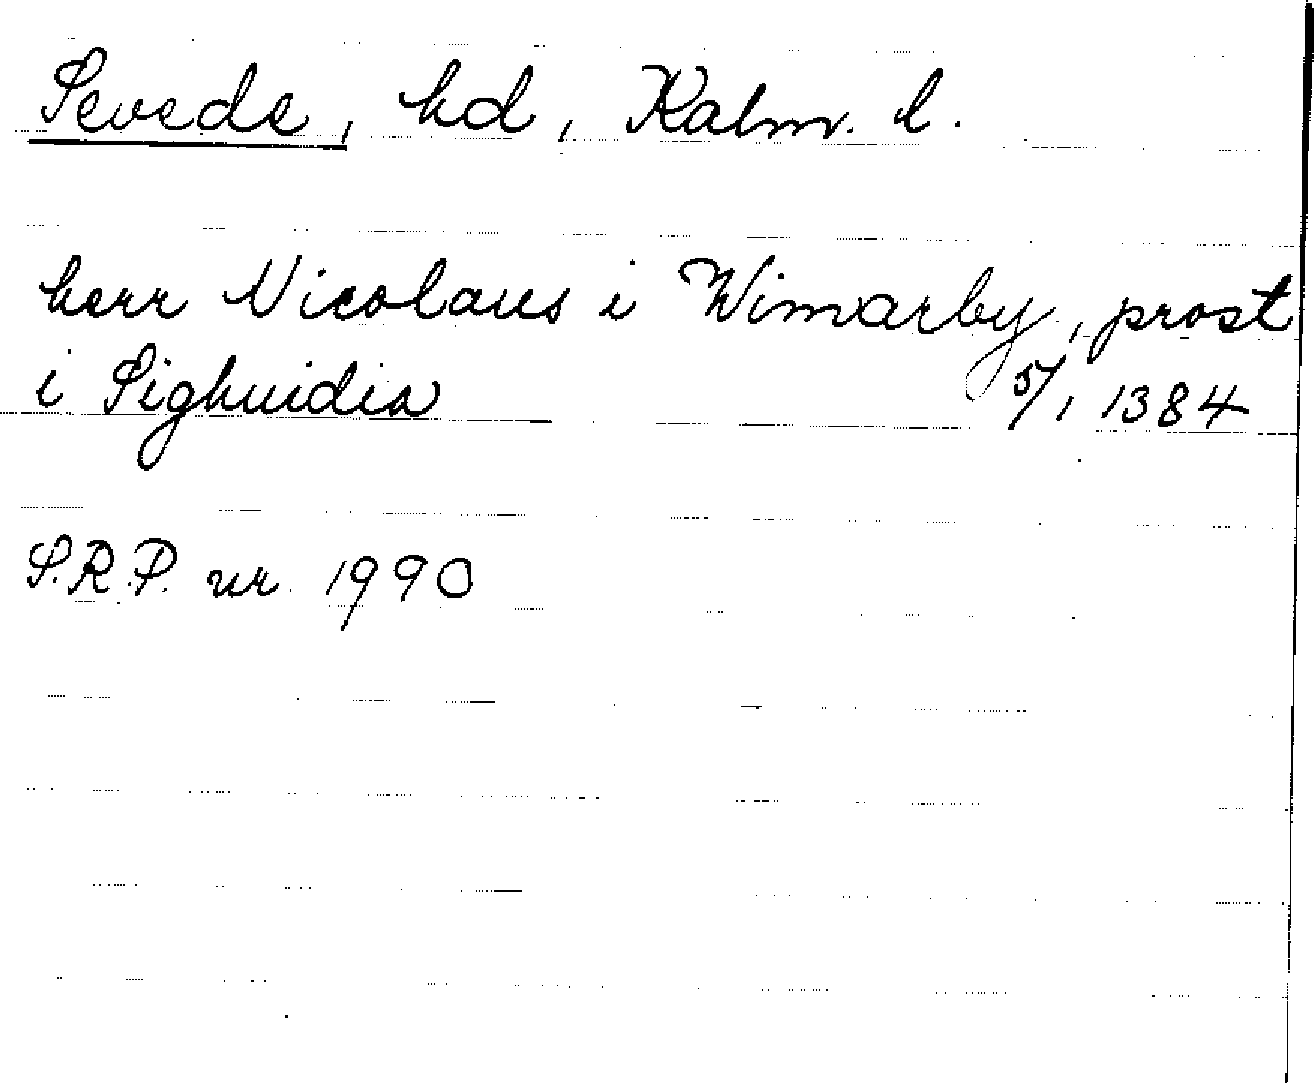 Sevede, hd, Kalm. l.
herr Nicolaus i Wimarby, prost
i Sighuidia 5/1 1384
S.R.P. nr. 1990